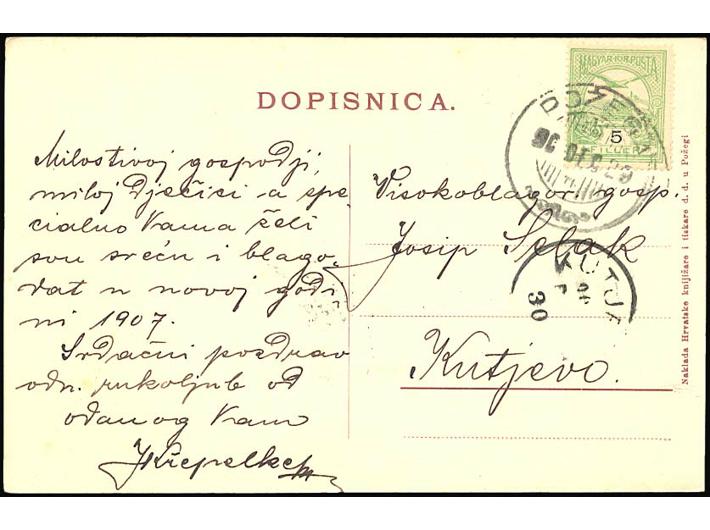 DOPISNICA.
Milostivoj gospodji,
miloj Dječici a spe
cialno Vama želi
svu sreću i blago
dat u novoj godi
ni 1907.
Srdačni pozdrav
odn. rukoljub od
odanog Vam
Visokoblagor. gosp.
Josip Selak
Kutjevo.
MAGYAR KIR. POSTA
5
FILLÉR
POŽEGA
906 DEC 29
KUTJE
30
Naklada Hrvatske knjižare i tiskare d. d. u Požegi